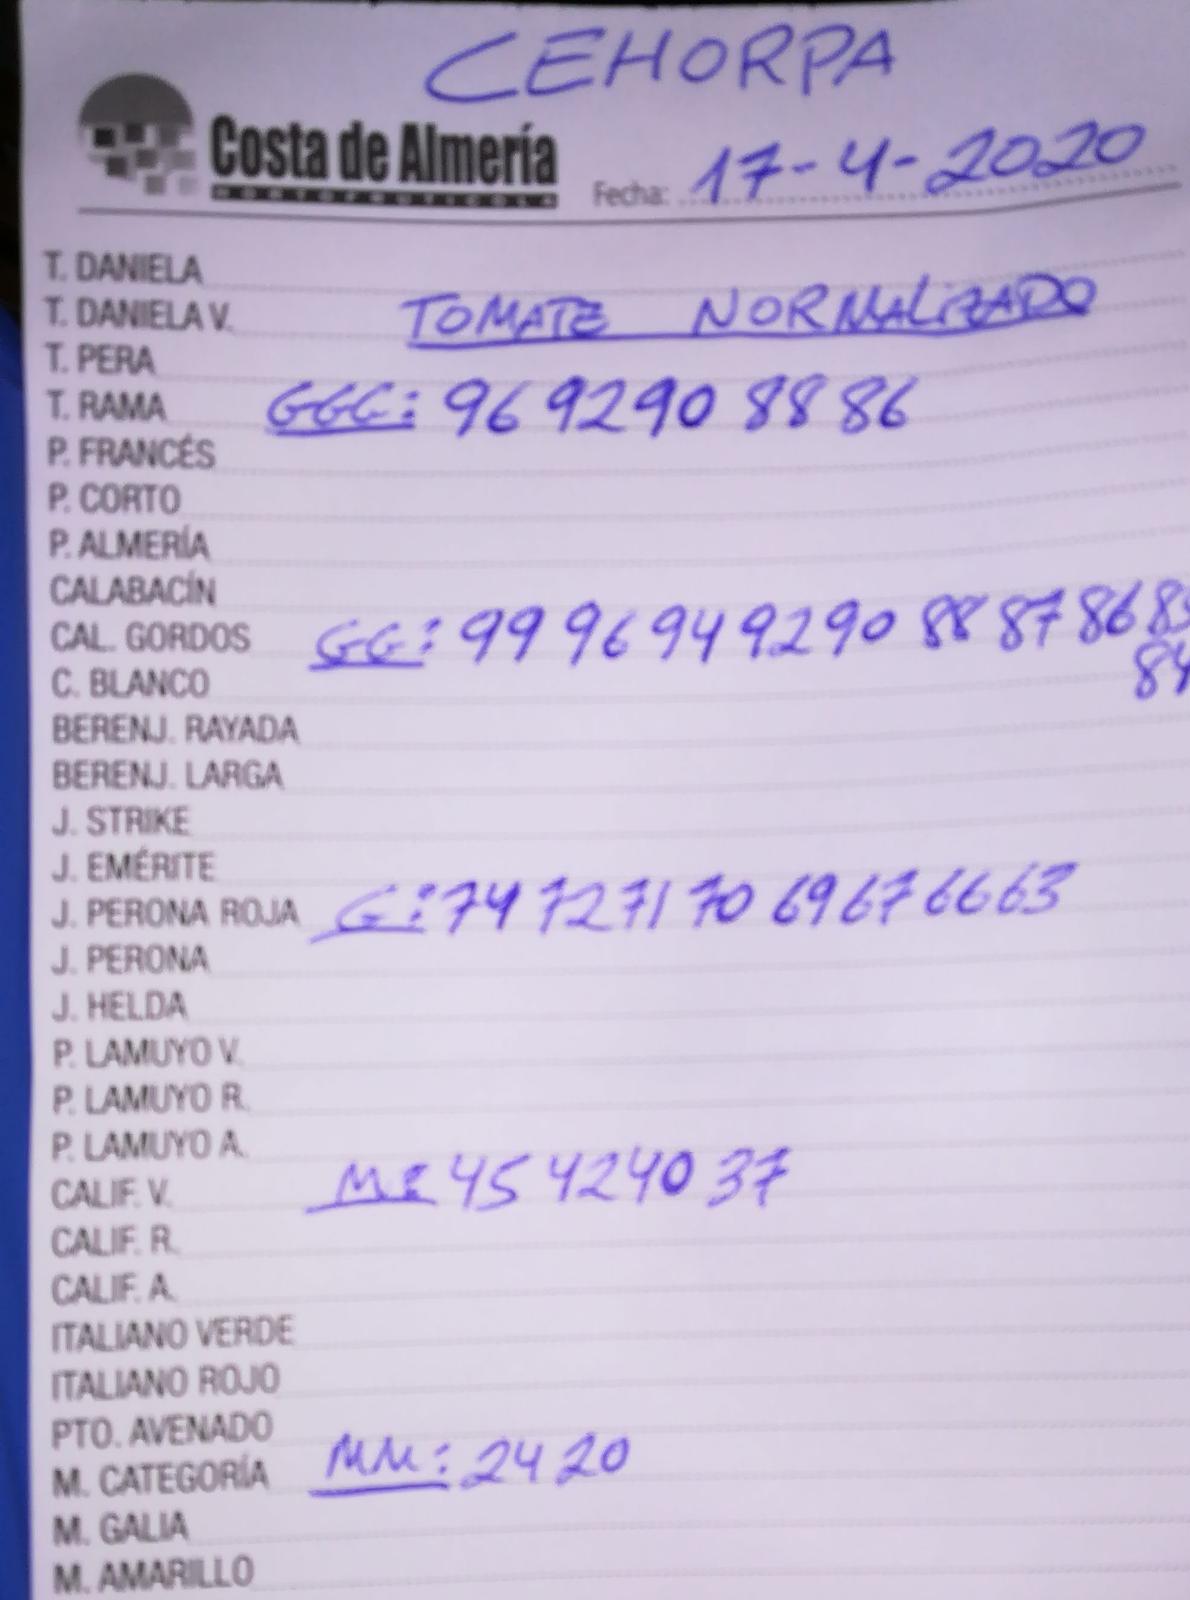 CEHORPA
Costa de Almería
HORTOFRUTICOLA
Fecha: 17-4-2020
T. DANIELA
T. DANIELA V. TOMATE NORMALIZADO
T. PERA
T. RAMA GGG: 96 92 90 88 86
P. FRANCÉS
P. CORTO
P. ALMERÍA
CALABACÍN
CAL. GORDOS GG: 99 96 94 92 90 88 87 86 85
C. BLANCO 84
BERENJ. RAYADA
BERENJ. LARGA
J. STRIKE
J. EMÉRITE
J. PERONA ROJA G: 74 72 71 70 69 67 66 63
J. PERONA
J. HELDA
P. LAMUYO V.
P. LAMUYO R.
P. LAMUYO A.
CALIF. V. M: 45 42 40 37
CALIF. R.
CALIF. A.
ITALIANO VERDE
ITALIANO ROJO
PTO. AVENADO
M. CATEGORÍA MM: 24 20
M. GALIA
M. AMARILLO